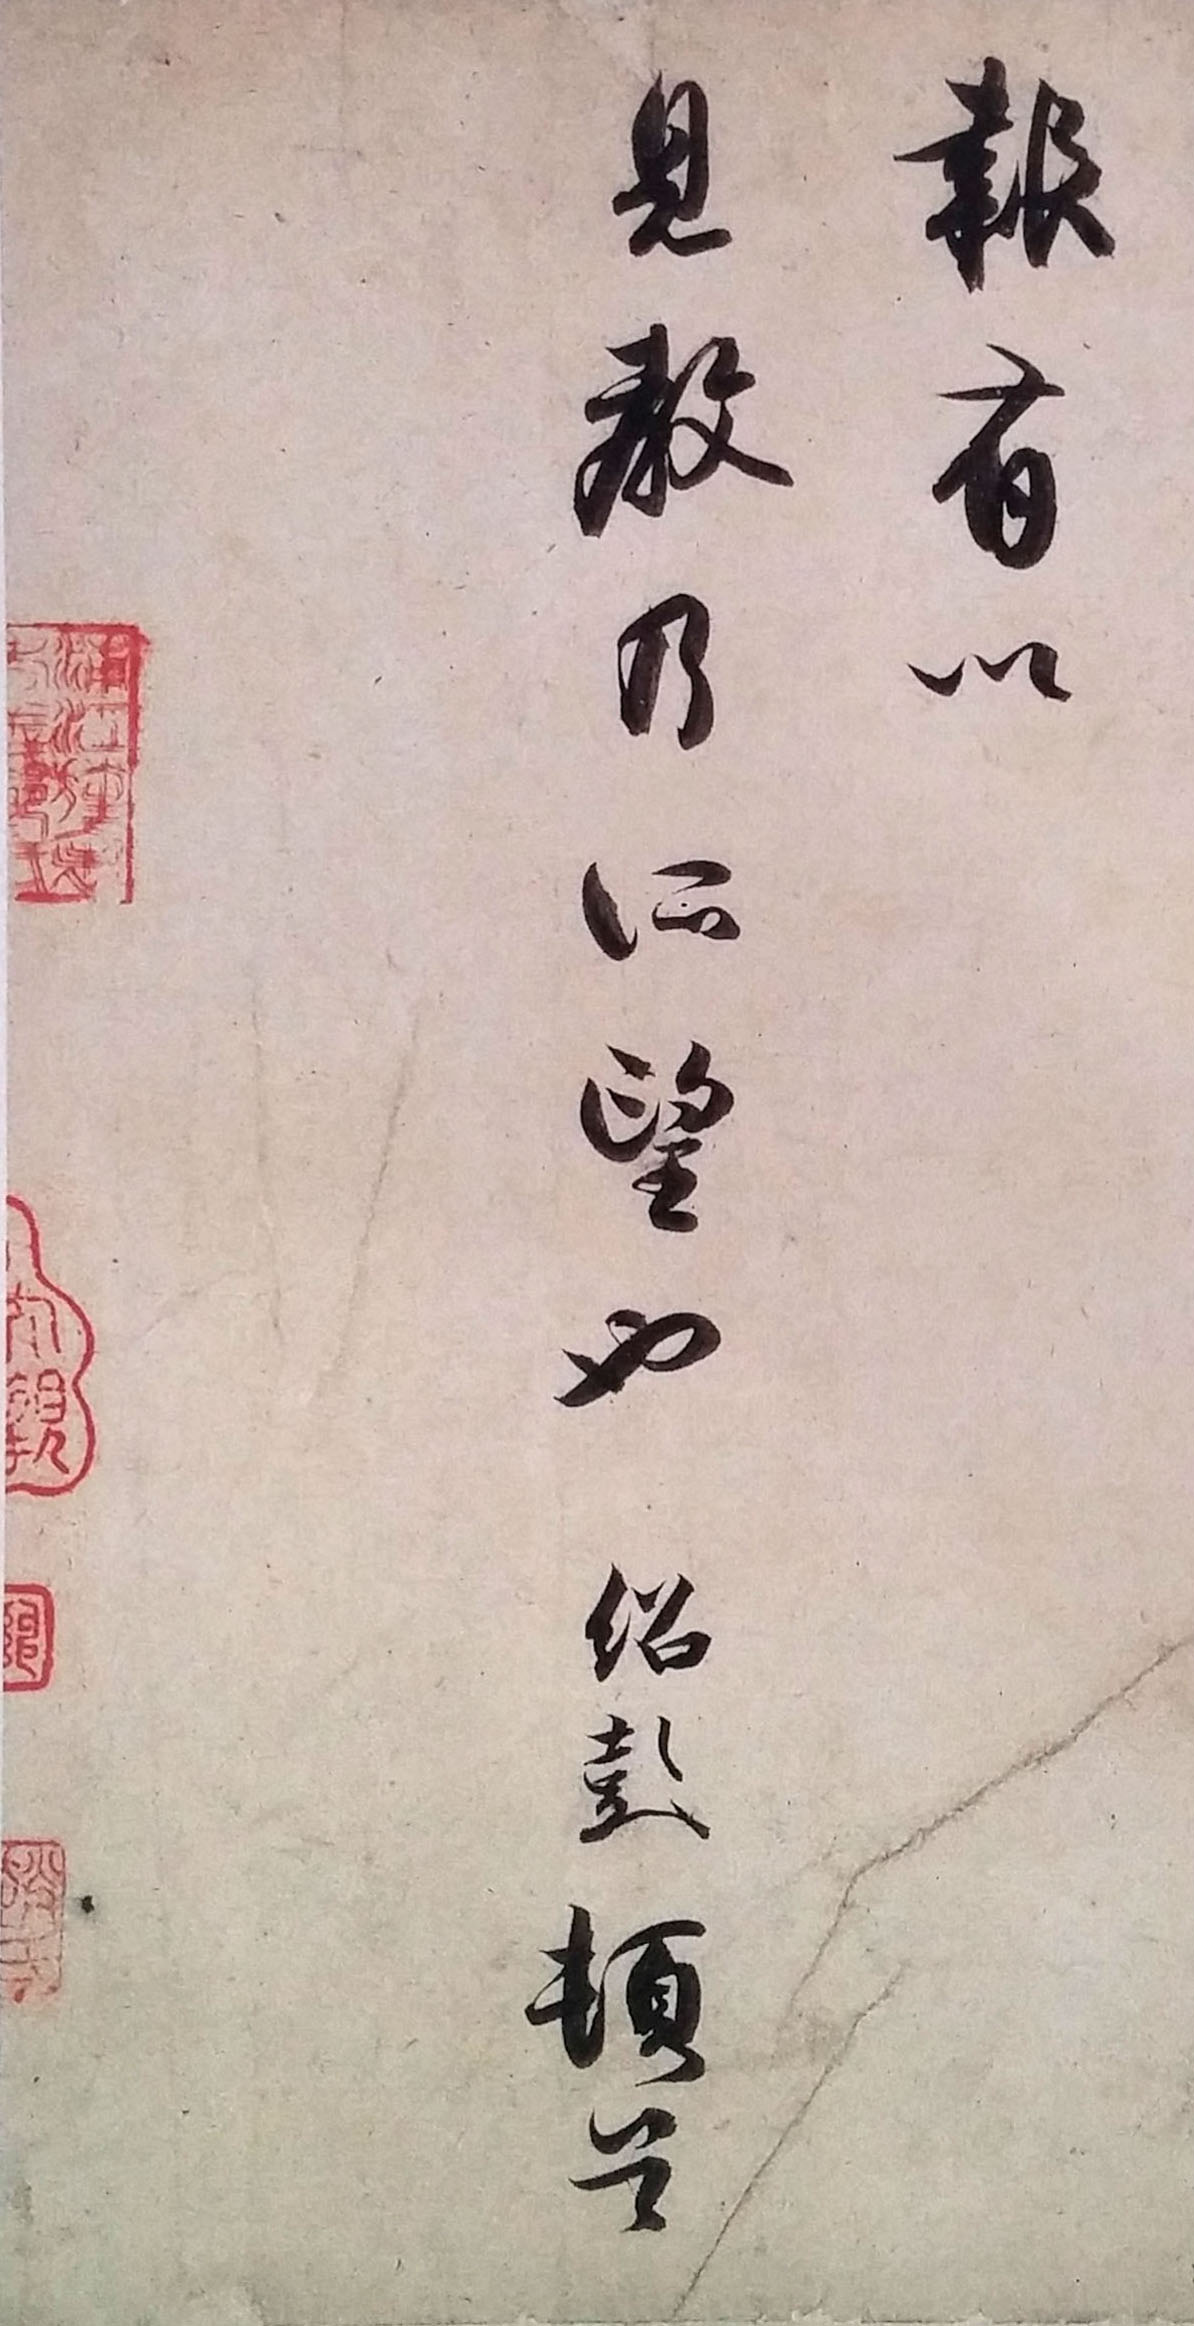 報有以
見教乃所望也 紹彭頓首